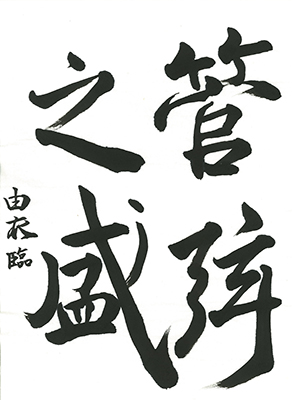 管弦
之盛
由衣臨